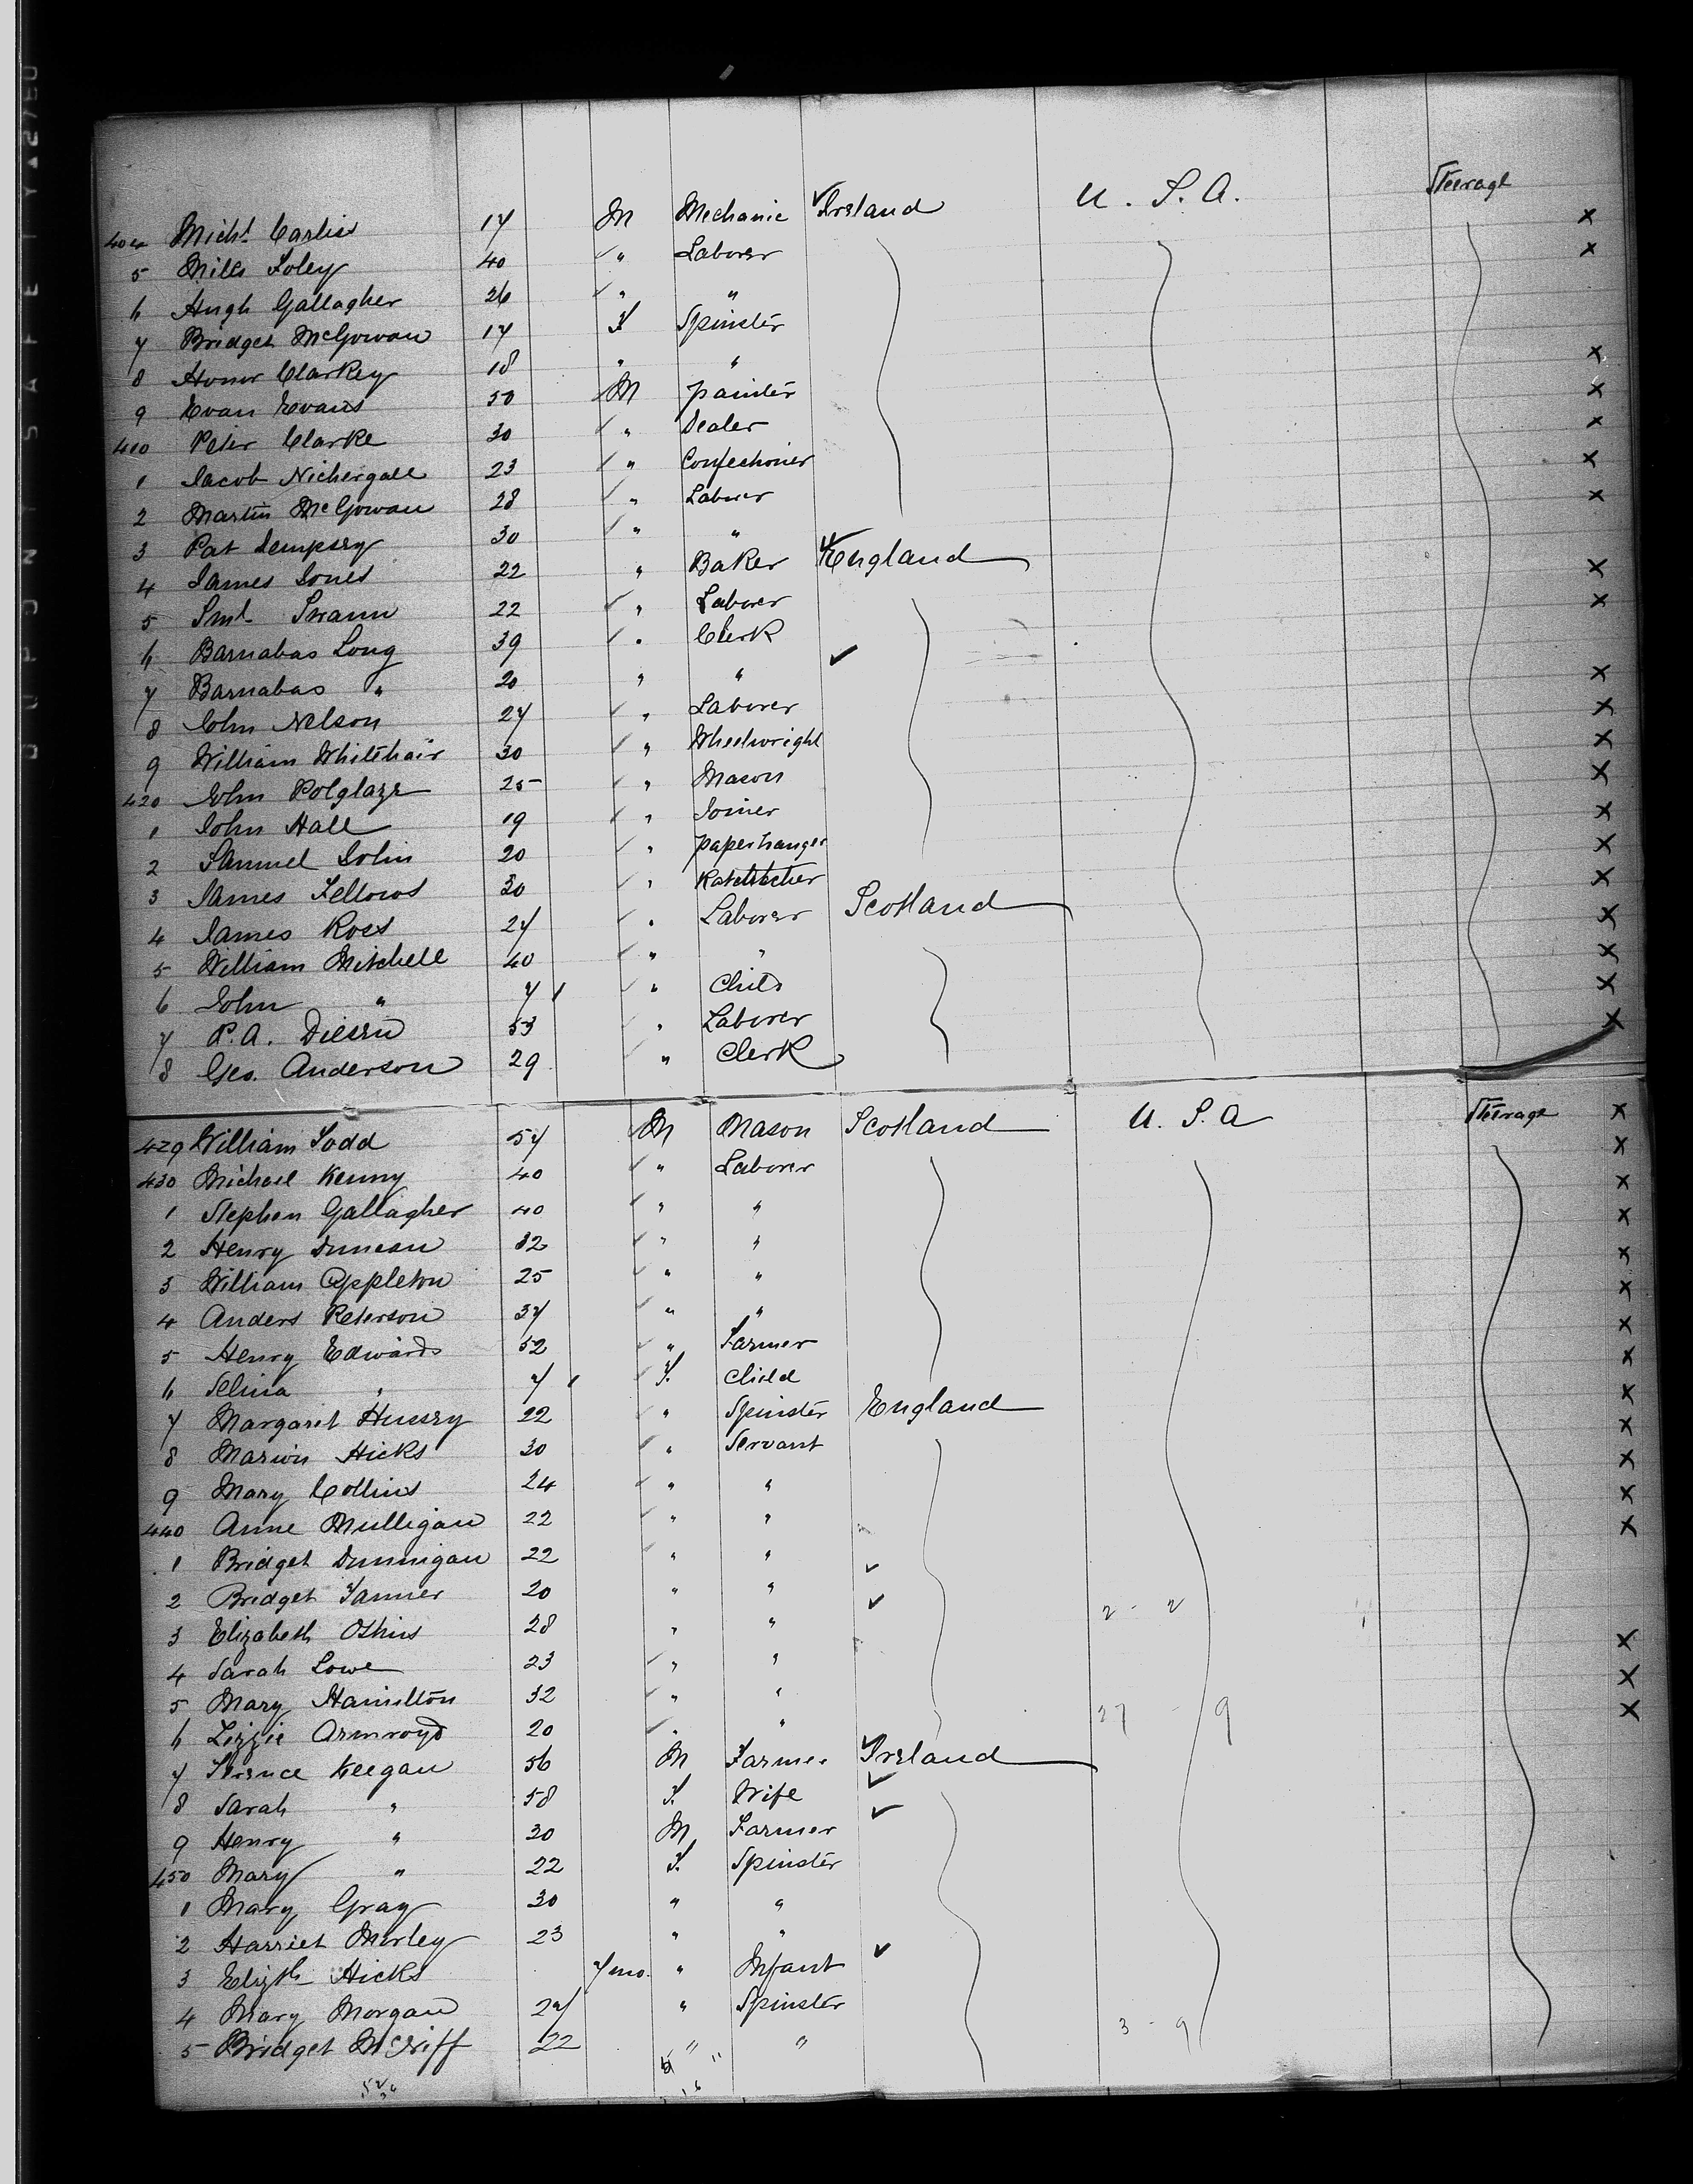 404 Michl. Carlis 17 M Mechanic Ireland U.S.A. Steerage X
5 Miles Foley 40 " Laborer X
6 Hugh Gallagher 26 " "
7 Bridget McGowan 17 F Spinster
8 Honor Clarkey 18 " " X
9 Evan Evans 50 M painter X
410 Peter Clarke 30 " Dealer X
1 Jacob 23 " Confectioner X
2 Martin McGowan 28 " Laborer X
3 Pat Dempsey 30 " "
4 James Jones 22 " Baker England X
5 Saml. Swann 22 " Laborer X
6 Barnabas Long 39 " Clerk
7 Barnabas " 20 " " X
8 John Nelson 27 " Laborer X
9 William Whitehair 30 " Wheelwright X
420 John Polglaze 25 " Mason X
1 John Hall 19 " Joiner X
2 Samuel John 20 " paperhanger X
3 James Fellows 30 " X
4 James Ross 27 " Laborer Scotland X
5 William Mitchell 40 " " X
6 John " 7 " Child X
7 P.A. 53 " Laborer X
8 Geo. Anderson 29 " Clerk
429 William Todd 57 M Mason Scotland U.S.A Steerage X
430 Michael Kenny 40 " Laborer X
1 Stephen Gallagher 40 " " X
2 Henry Duncan 32 " " X
3 William Appleton 25 " " X
4 Anders Peterson 37 " " X
5 Henry Edwards 52 " Farmer X
6 Selina " 7 F. Child X
7 Margaret Hussey 22 " Spinster England X
8 Marion Hicks 30 " Servant X
9 Mary Collins 24 " " X
440 Anne Mulligan 22 " " X
1 Bridget Dunnigan 22 " " X
2 Bridget Tanner 20 " "
3 Elizabeth 28 " "
4 Sarah Lowe 23 " " X
5 Mary Hamilton 32 " " X
6 Lizzie Armroyd 20 " " X
7 Terence Keegan 56 M Farmer Ireland
8 Sarah " 58 F. Wife
9 Henry " 30 M Farmer
450 Mary " 22 F. Spinster
1 Mary Gray 30 " "
2 Harriet Morley 23 " "
3 Elizth Hicks 7 mo. " Infant
4 Mary Morgan 27 " Spinster
5 Bridget McGriff 22 " "